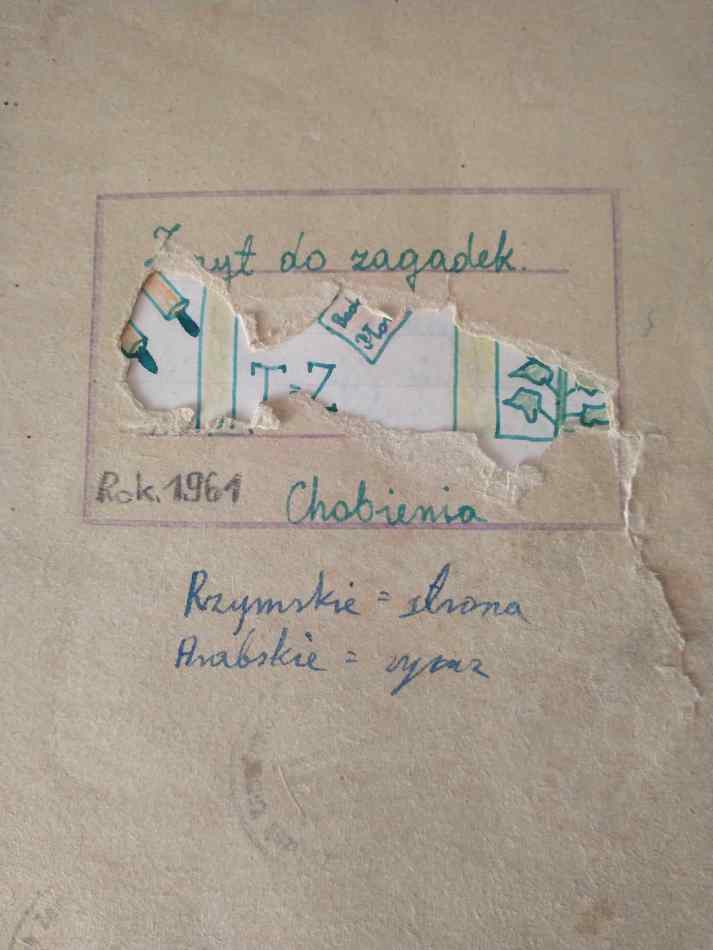 Zeszyt do zagadek.
T-Z
Rok. 1961
Chobienia
Rzymskie = strona
Arabskie = wyraz